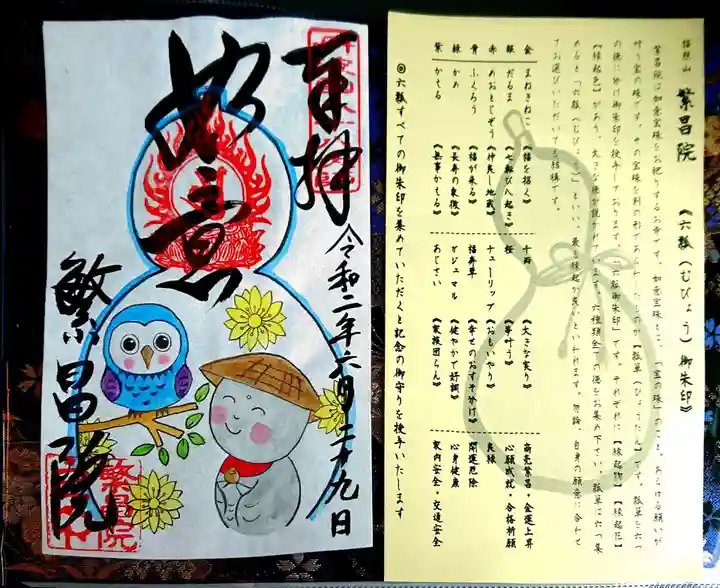 奉拝
令和二年六月二十九日
如意
繁昌院
繁昌院
繁昌院
《六瓢(むびょう)御朱印》
繁昌院は如意宝珠をお祀りするお寺です。如意宝珠とは、「宝の珠」のこと。あらゆる願いが
叶う宝の珠です。その宝珠を別の形であらわしたものが【瓢箪(ひょうたん)】です。瓢箪を六つ
の徳に分け御朱印を授与しております。「六瓢御朱印」です。それぞれに【縁起物】【縁起花】
【縁起色】があり、大きな徳が説かれています。六種類全ての徳をお集め下さい。瓢箪に六つ集
めると「六瓢(むびょう)」といい、最も縁起が良いといわれます。勿論、自身の願意に合わせ
てお選びいただいても結構です。
金 まねきねこ 《福を招く》 千両 《大きな実り》 商売繁昌・金運上昇
銀 だるま 《七転び八起き》 桜 《事叶う》 心願成就・合格祈願
赤 めおとじぞう 《仲良し地蔵》 チューリップ 《おもいやり》 良縁
青 ふくろう 《福が来る》 福寿草 《幸せのおすそ分け》 開運厄除
緑 かめ 《長寿の象徴》 ガジュマル 《健やかで好調》 心身健康
紫 かえる 《無事かえる》 あじさい 《家族団らん》 家内安全・交通安全
◎六瓢すべての御朱印を集めていただくと記念の御守りを授与いたします